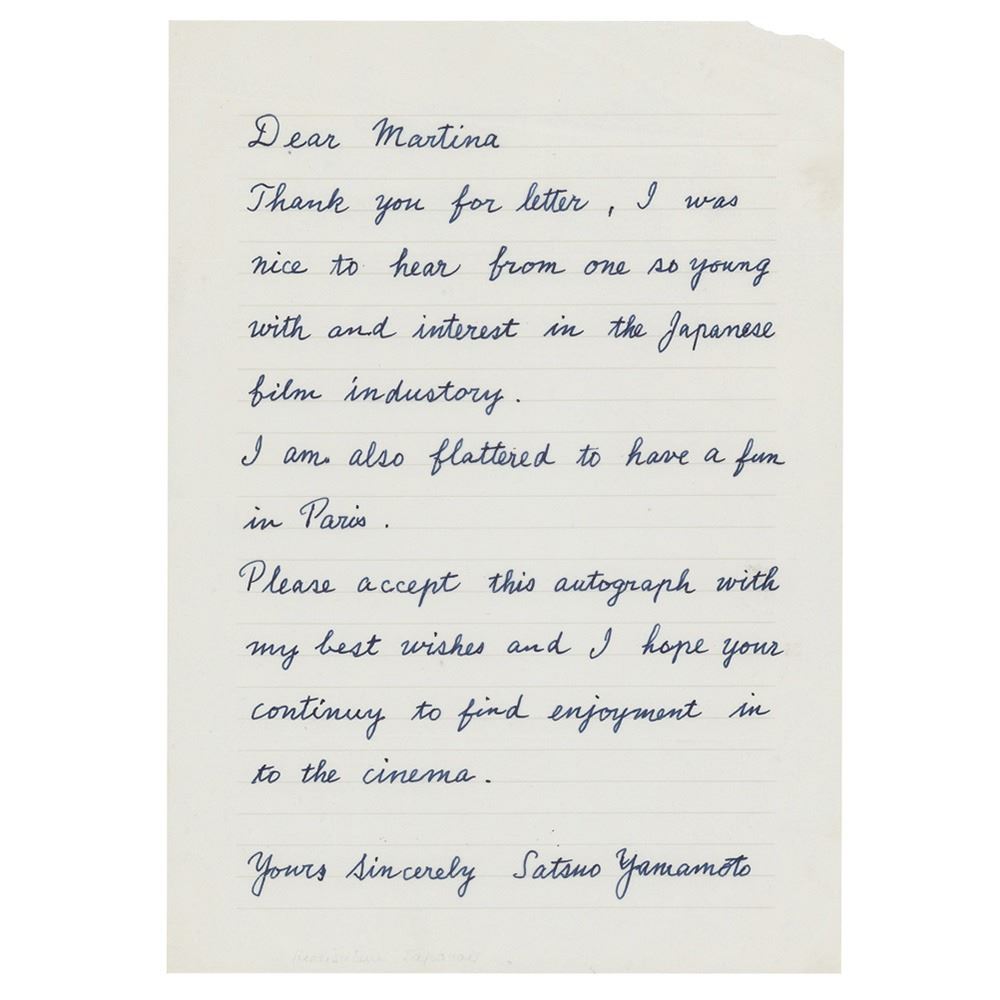 Dear Martina
Thank you for letter , I was
nice to hear from one so young
with and interest in the Japanese
film industory .
I am. also flattered to have a fun
in Paris .
Please accept this autograph with
my best wishes and I hope your
continuy to find enjoyment in
to the cinema .
Yours sincerely Satsuo Yamamoto